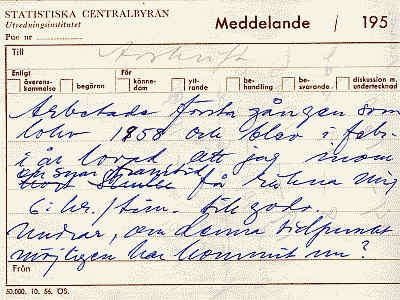 STATISTISKA CENTRALBYRÅN
Utredningsinstitutet
Meddelande / 195
Pue nr
Till
Avskrift
Enligt
För
överens-kommelse
begäran
känne-dom
ytt-rande
be-handling
be-svarande
diskussion m. undertecknad
Arbetade första gången som
tolv 1958 och blev i febr.
i år lovad, att jag inom
en snar framtid
skulle få räkna mig
6:- kr./tim. till godo.
Undrar, om denna tidpunkt
möjligen har kommit nu?
Från
50.000. 10. 56. ÖS.